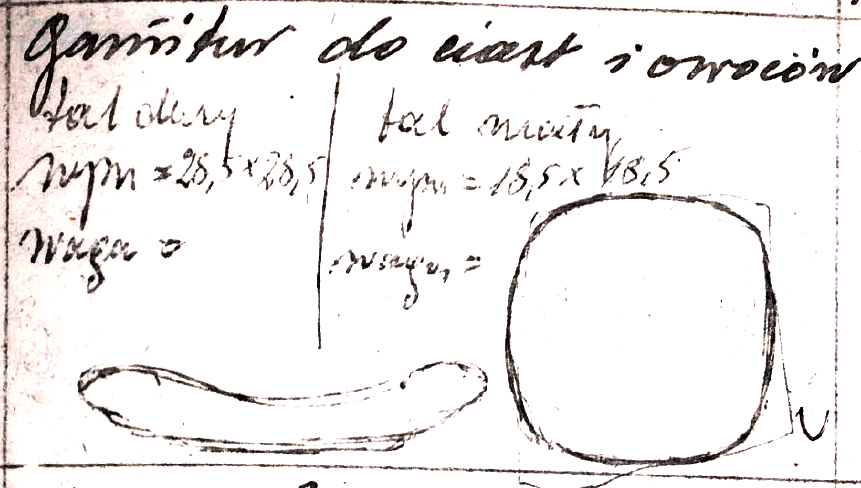 Garnitur do ciast i owoców
tal duży
wym = 28,5 x 28,5
waga =
tal mały
wym = 18,5 x 18,5
waga =